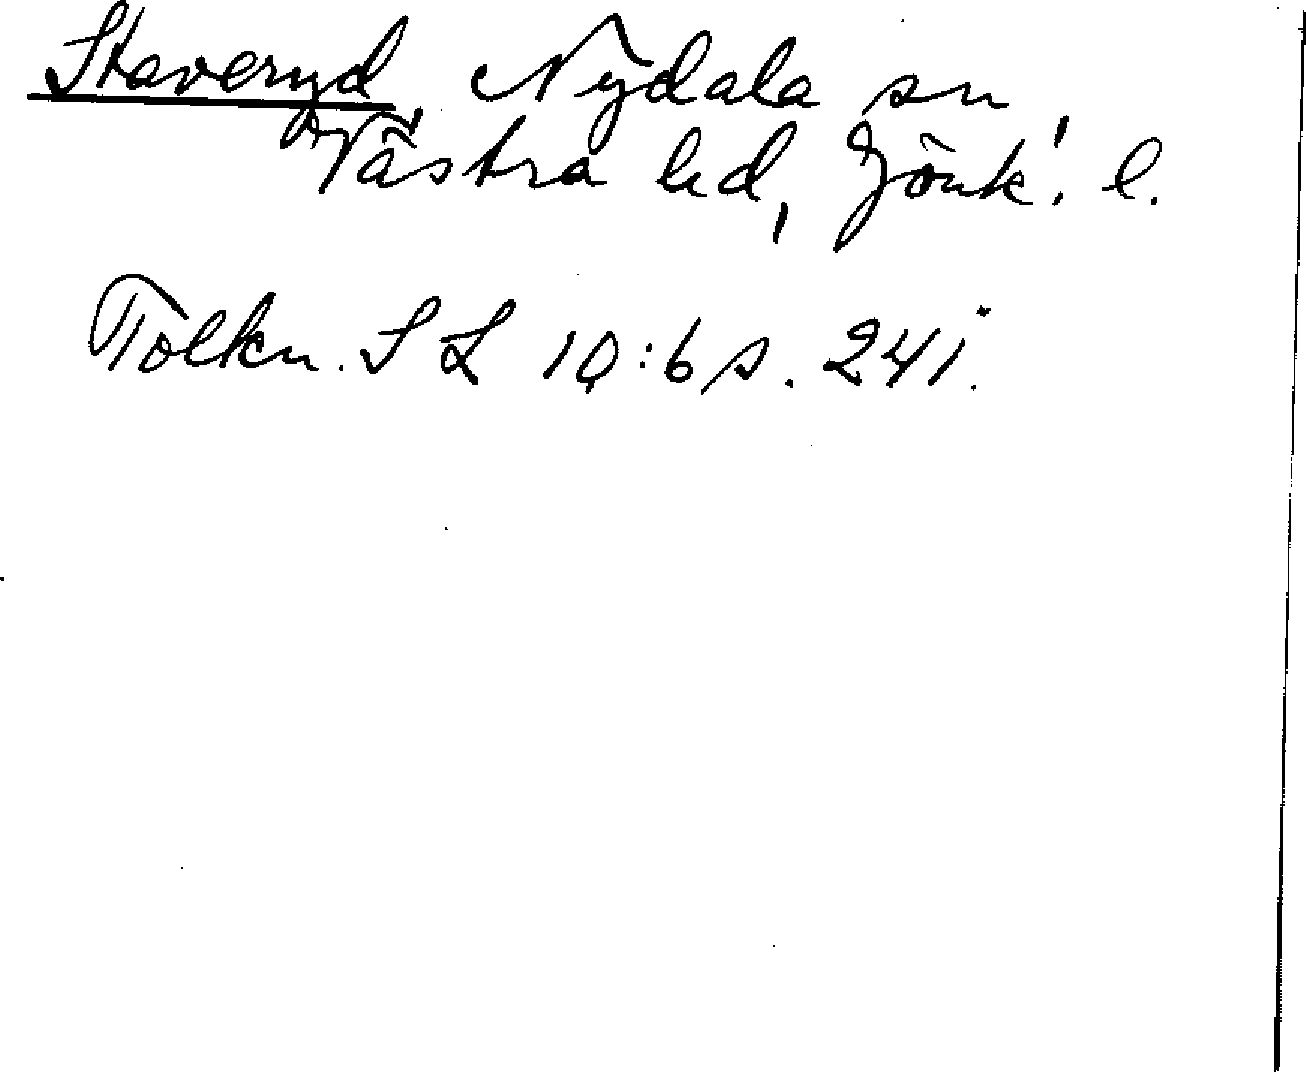 Staveryd, Nydala sn
Västra hd, Jönk. l.
Tolkn. SL 10:6 s. 241.